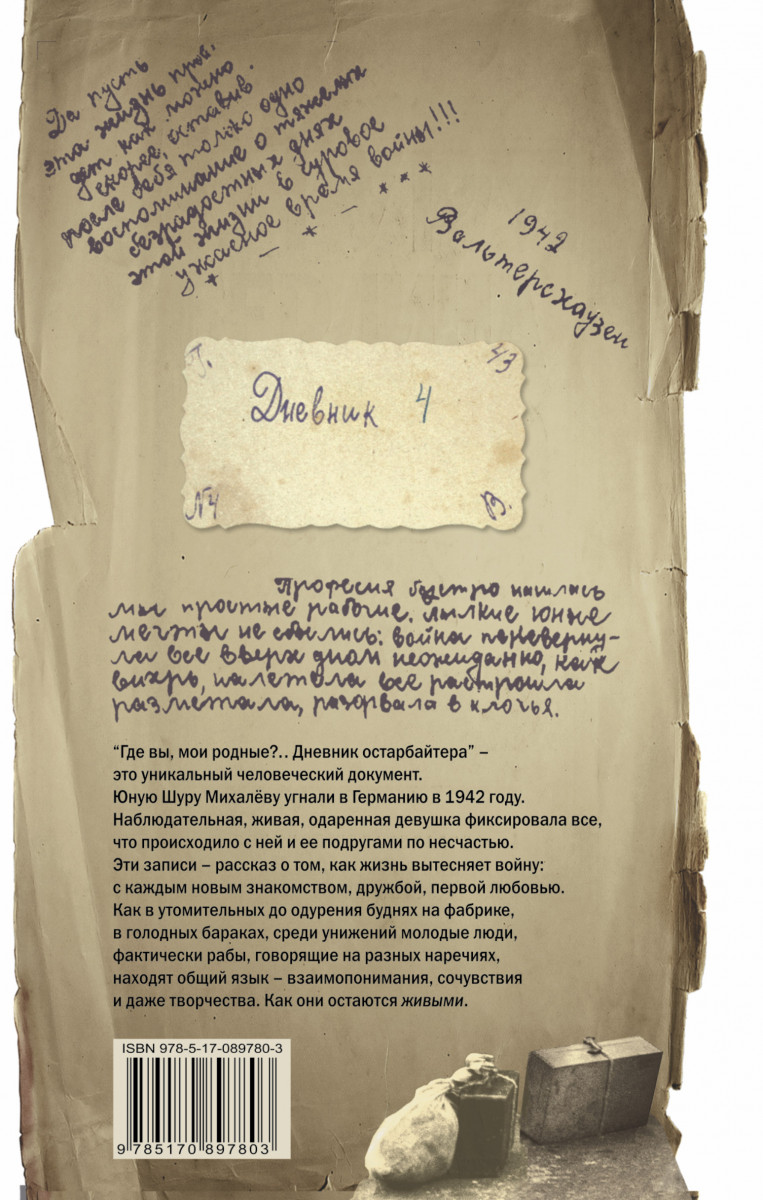 Да пусть
эта жизнь прой-
дет как можно
скорее, оставив
после себя только одно
воспоминание о тяжелых
безрадостных днях
этой жизни в суровое
ужасное время войны!!!
* — * — * * *
1942
Вальтерсхаузен
Г. 43
Дневник 4
N4 В.
Професия быстро нашлась
мы простые рабочие. Пылкие юные
мечты не сбылись: война паневерну-
ла все вверх дном неожиданно, как
вихрь, налетела все растрошла
разметала, разорвала в клочья.
“Где вы, мои родные?.. Дневник остарбайтера” –
это уникальный человеческий документ.
Юную Шуру Михалёву угнали в Германию в 1942 году.
Наблюдательная, живая, одаренная девушка фиксировала все,
что происходило с ней и ее подругами по несчастью.
Эти записи – рассказ о том, как жизнь вытесняет войну:
с каждым новым знакомством, дружбой, первой любовью.
Как в утомительных до одурения буднях на фабрике,
в голодных бараках, среди унижений молодые люди,
фактически рабы, говорящие на разных наречиях,
находят общий язык – взаимопонимания, сочувствия
и даже творчества. Как они остаются живыми.
ISBN 978-5-17-089780-3
9 785170 897803